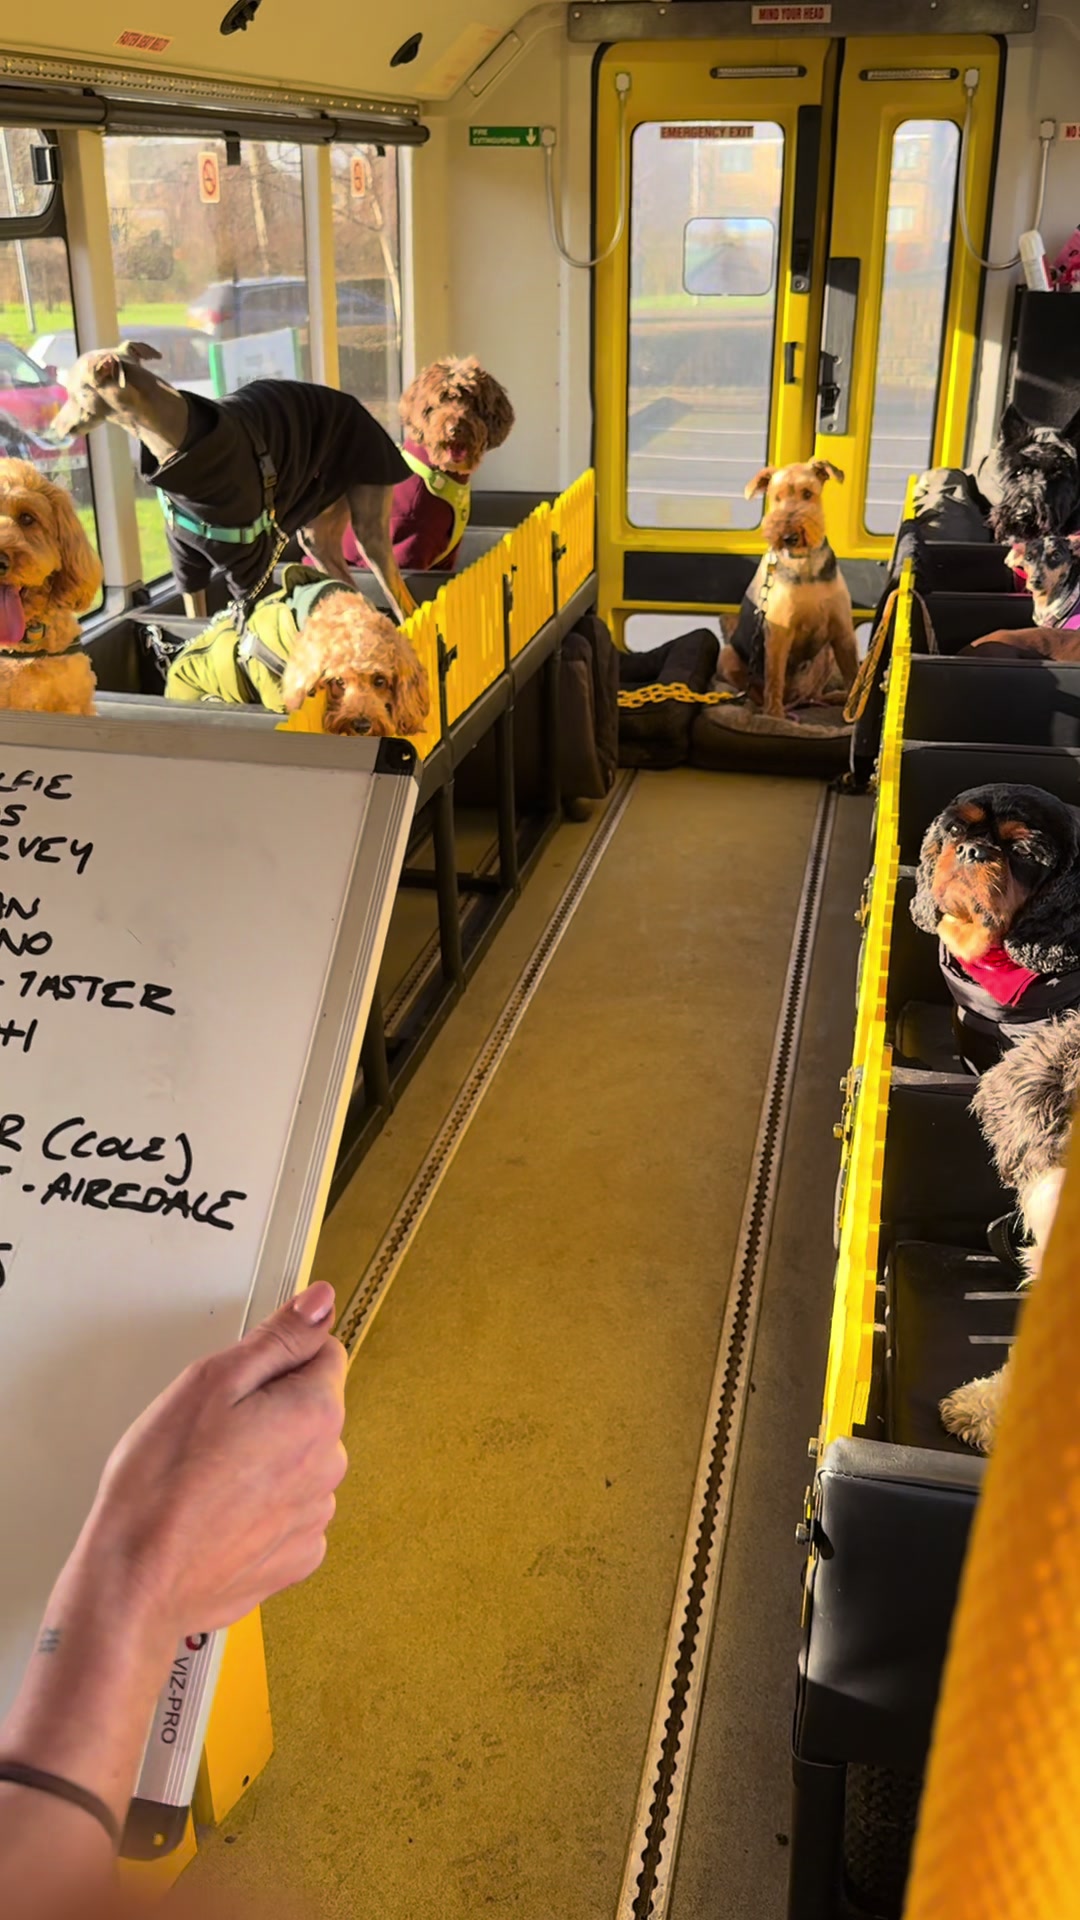 MIND YOUR HEAD
FASTEN SEAT BELTS
FIRE
EXTINGUISHER
EMERGENCY EXIT
NO
LFIE
S
RVEY
AN
NO
- TASTER
+1
R (COLE)
- AIREDALE
S
VIZ-PRO